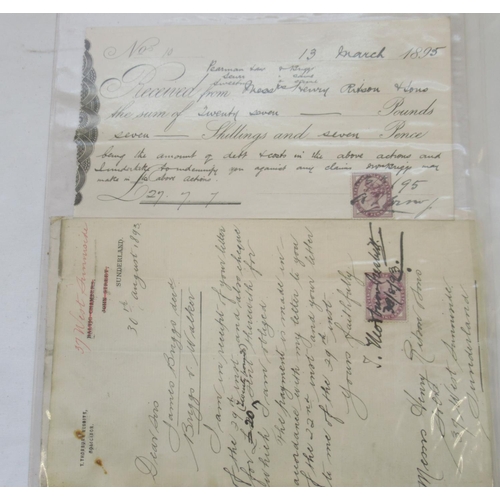 No.
13 March 1895
Received from Messrs Henry Ritson & Sons
the sum of twenty seven Pounds
seven Shillings and seven Pence
being the amount of debt & costs in the above actions and
undertake to indemnify you against any claim may
make in the above actions.
£27.7.7
95
37 West Sunniside
SUNDERLAND.
30th August 1893
Dear Sirs
James Briggs and
Briggs v Walker
I am in receipt of your letter
of the 29th inst and also cheque
for £20
which I am obliged.
the payment is made in
accordance with my letter to you
of the 22nd inst and your letter
to me of the 29th inst
Yours faithfully
Messrs Henry Ritson & Sons
37 West Sunniside
Sunderland
SOLICITOR.